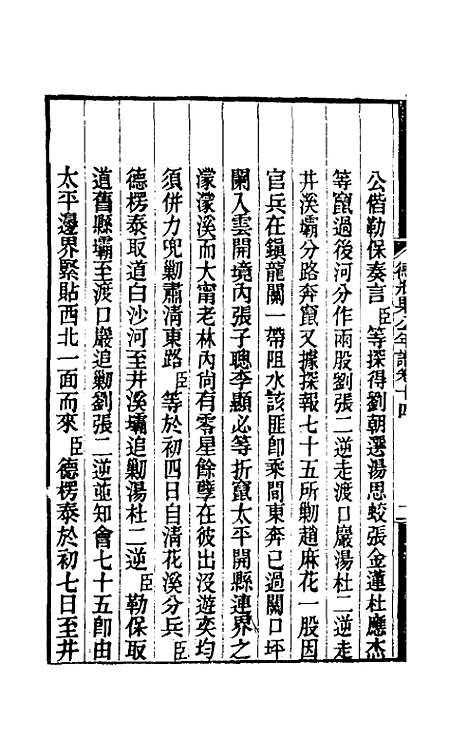 德壯果公年譜卷十四
二
公偕勒保奏言臣等探得劉朝選湯思蛟張金蓮杜應杰
等竄過後河分作兩股劉張二逆走渡口巖湯杜二逆走
井溪壩分路奔竄又據探報七十五所勦趙麻花一股因
官兵在鎭龍關一帶阻水該匪卽乘間東奔已過關口坪
闌入雲開境內張子聰李顯必等折竄太平開縣連界之
濛濛溪而大甯老林內尙有零星餘孽在彼出沒遊奕均
須併力兜勦肅清東路臣等於初四日自清花溪分兵臣
德楞泰取道白沙河至井溪壩追勦湯杜二逆臣勒保取
道舊縣壩至渡口巖追勦劉張二逆並知會七十五卽由
太平邊界緊貼西北一面而來臣德楞泰於初七日至井